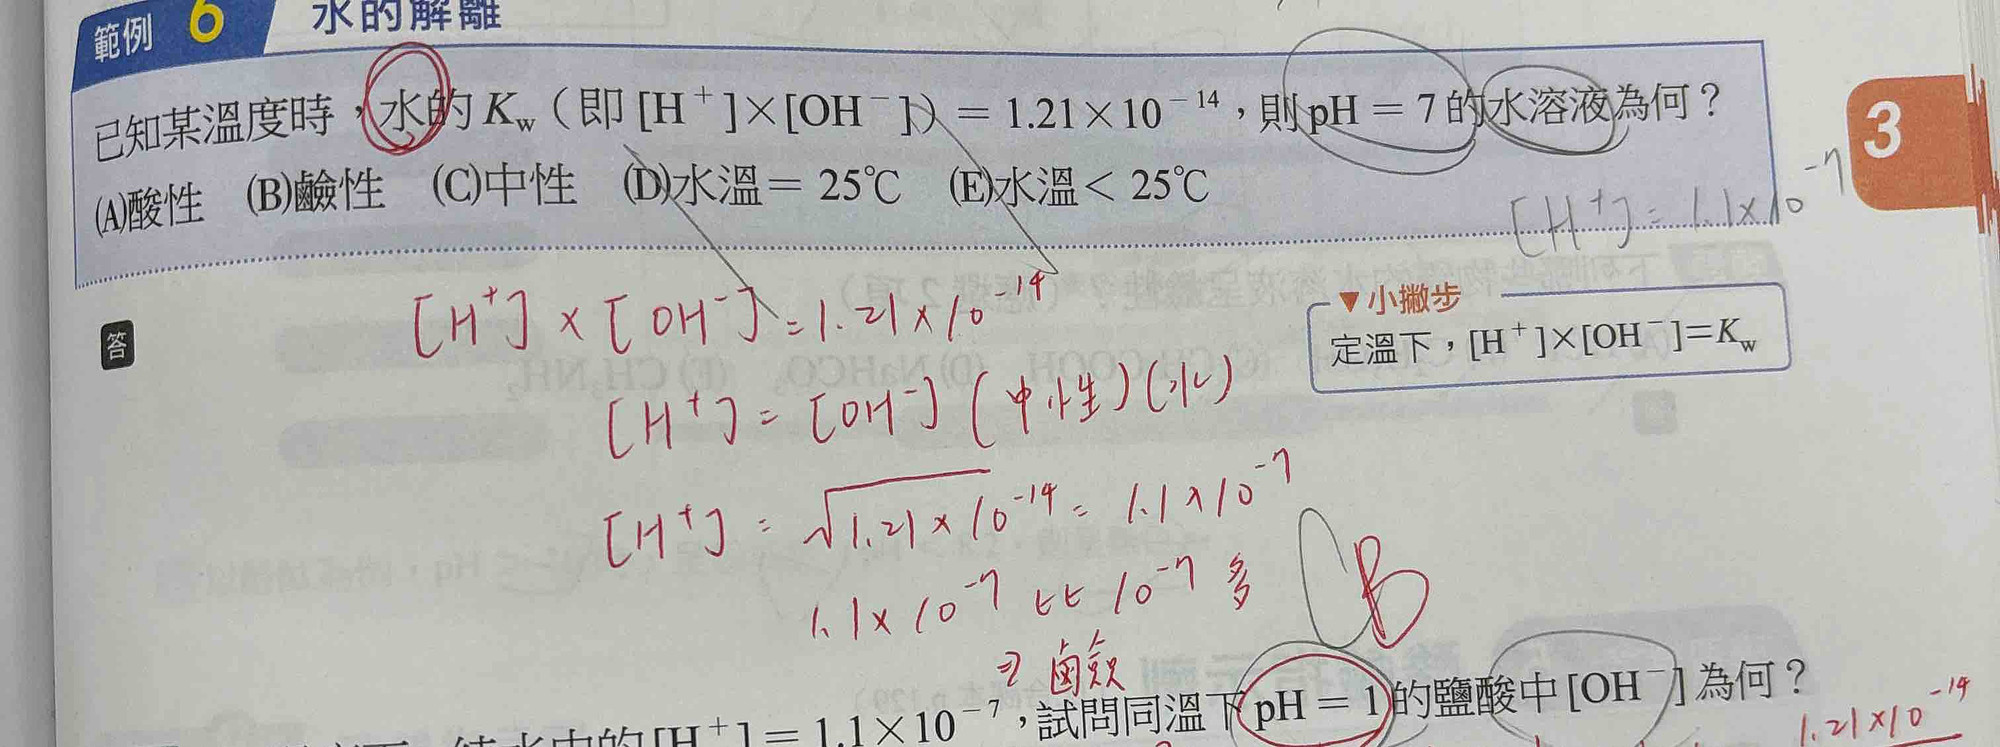 範例 6 水的解離
已知某溫度時，水的 Kw（即 [H⁺]×[OH⁻]）= 1.21×10⁻¹⁴，則 pH = 7 的水溶液為何？
(A)酸性 (B)鹼性 (C)中性 (D)水溫 = 25℃ (E)水溫 < 25℃
3
[H⁺] = 1.1×10⁻⁷
答
[H⁺] × [OH⁻] = 1.21×10⁻¹⁴
▼小撇步
定溫下，[H⁺]×[OH⁻]=Kw
[H⁺] = [OH⁻] (中性)(水)
[H⁺] = √1.21×10⁻¹⁴ = 1.1×10⁻⁷
1.1×10⁻⁷ 比 10⁻⁷ 多
B
純水中的[H⁺] = 1.1×10⁻⁷，試問同溫下 pH = 1 的鹽酸中 [OH⁻] 為何？
1.21×10⁻¹⁴